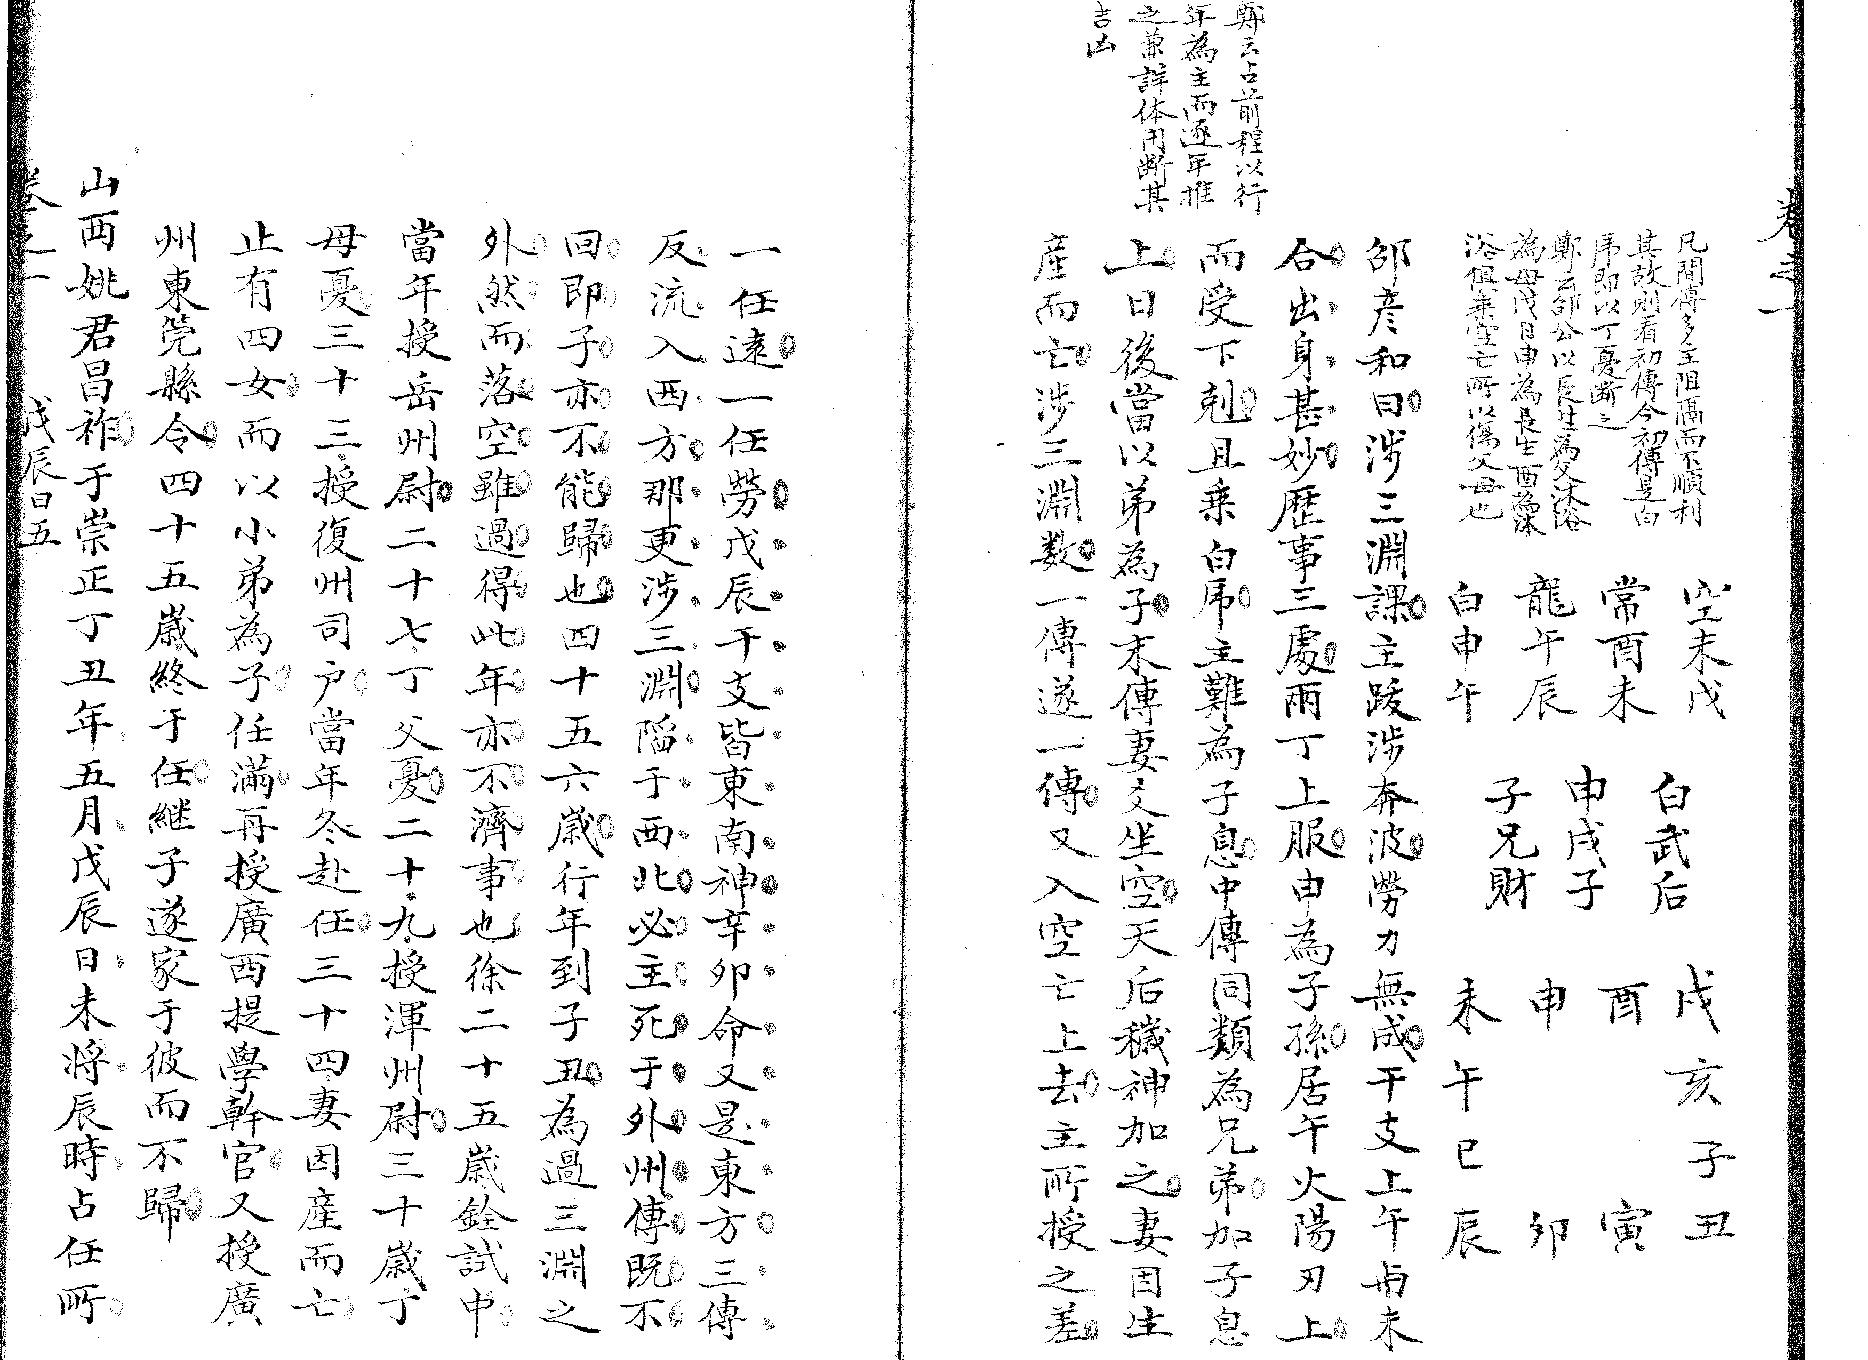 卷之一
鄭云占前程以行
年為主而逐年推
之兼詳体用斷其
吉凶
凡間傳多主阻隔而不順利
其故則看初傳今初傳是白
虎即以丁憂斷之
鄭云邵公以長生為父沐浴
為母戊日申為長生酉為沐
浴俱乘空亡所以傷父母也
空未戊
常酉未
龍午辰
白申午
白武后
申戌子
子兄財
戌亥子丑
酉 寅
申 卯
未午巳辰
邵彦和曰涉三淵課主跋涉奔波勞力無成干支上午与未
合出身甚妙歷事三處兩丁上服申為子孫居午火陽刃上
而受下剋且乘白虎主難為子息中傳同類為兄弟加子息
上日後當以弟為子末傳妻爻坐空天后穢神加之妻因生
產而亡涉三淵数一傳遂一傳又入空亡上去主所授之差
一任遠一任勞戊辰干支皆東南神辛卯命又是東方三傳
反流入西方那更涉三淵陷于西北必主死于外州傳既不
回即子亦不能歸也四十五六歲行年到子丑為過三淵之
外然而落空雖過得此年亦不濟事也徐二十五歲銓試中
當年授岳州尉二十七丁父憂二十九授渾州尉三十歲丁
母憂三十三授復州司户當年冬赴任三十四妻因產而亡
止有四女而以小弟為子任滿再授廣西提學幹官又授廣
州東莞縣令四十五歲終于任継子遂家于彼而不歸
山西姚君昌祚于崇正丁丑年五月戊辰日未將辰時占任所
卷之一 戊辰日五